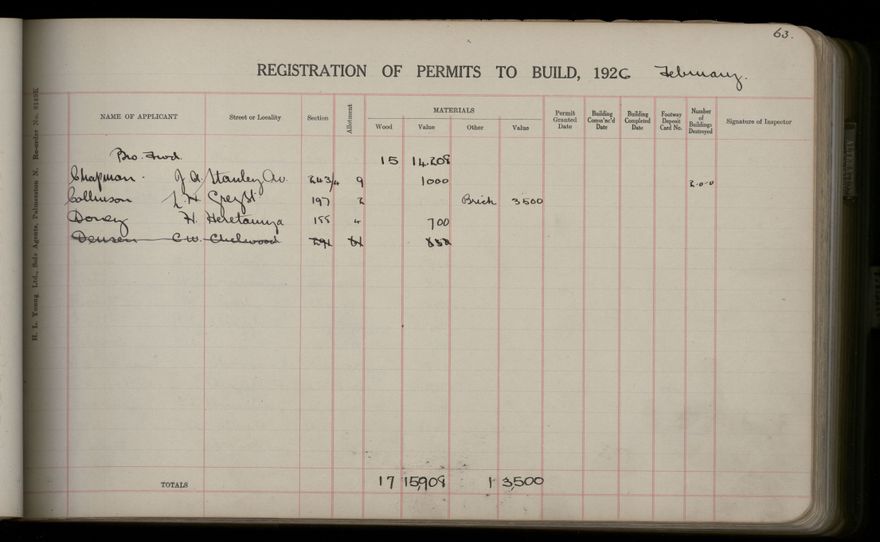 63.
REGISTRATION OF PERMITS TO BUILD, 1926 February.
NAME OF APPLICANT Street or Locality Section Allotment MATERIALS Wood Value Other Value Permit Granted Date Building Comm'nc'd Date Building Completed Date Footway Deposit Card No. Number of Buildings Destroyed Signature of Inspector
Bro. Fwd. 15 14.208
Chapman. J A Stanley Av. 243/4 9 1000 2-0-0
Collinson L. H Grey St 197 2 Brick 3500
Dorey H. Heretaunga 155 4 700
Densen C W. Chelwood
TOTALS 17 15,908 1 3,500
H. L. Young Ltd., Sole Agents, Palmerston N. Re-order No.